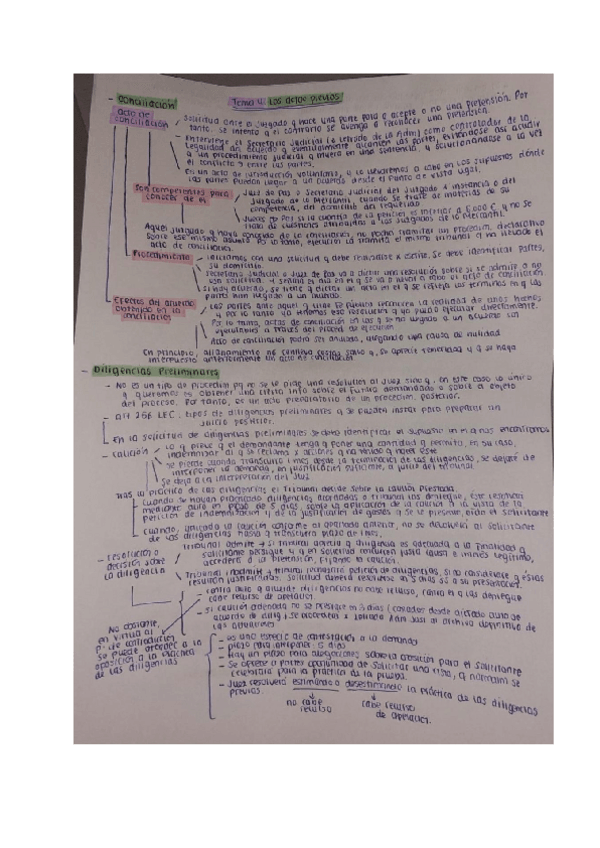 Tema 4: Los actos previos
- Conciliación
acto de conciliación
Solicitud ante el Juzgado q hace una parte para q acepte o no una pretensión. Por
tanto, se intenta q el contrario se avenga o reconocer una pretensión.
Interviene el Secretario Judicial (o letrado de la Adm) como controlador de la
legalidad del acuerdo q eventualmente alcancen las partes, evitándose así acudir
a un procedimiento judicial q muera en una sentencia, y solucionándose a la vez
el conflicto entre las partes.
Es un acto de jurisdicción voluntaria, q lo llevaremos a cabo en los supuestos dónde
las partes puedan llegar a un acuerdo desde el punto de vista legal.
Son competentes para conocer de él
Juez de Paz o Secretario Judicial del Juzgado 1ª instancia o del
Juzgado de lo Mercantil, cuando se trate de materias de su
competencia, del domicilio del requerido
Jueces de Paz si la cuantía de la petición es inferior a 6000 € y no se
trata de cuestiones atribuidas a los Juzgados de lo Mercantil.
Aquel juzgado q haya conocido de la conciliación, no podrá tramitar un procedim. declarativo
sobre ese mismo asunto. Por lo tanto, ejecución la tramita el mismo tribunal q ha tratado el
acto de conciliación.
Procedimiento
Iniciamos con una solicitud q debe realizarse x escrito. Se debe identificar partes,
su domicilio.
Secretario Judicial o Juez de Paz va a dictar una resolución sobre si se admite o no
esa solicitud. + señala el día en el q se va a llevar a cabo el acto de conciliación
Si hay acuerdo, se tiene q dictar un acta en el q se refleja los términos en q las
partes han llegado a un acuerdo.
Efectos del acuerdo obtenido en la conciliación
Las partes ante aquel q tiene fe pública reconocen la realidad de unos hechos
y por lo tanto ya tenemos esa resolución q ya puedo ejecutar directamente.
Por lo tanto, actos de conciliación en los q se ha llegado a un acuerdo son
ejecutables a través del proceso de ejecución
Acto de conciliación podrá ser anulado, alegando una causa de nulidad
En principio, allanamiento no conlleva costas salvo q se aprecie temeridad y q se haya
interpuesto anteriormente un acto de conciliación.
- Diligencias Preliminares
- No es un tipo de procedim pq no se le pide una resolución al Juez sino q, en este caso lo único
q queremos es obtener una cierta info sobre el futuro demandado o sobre el objeto
del proceso. Por tanto, es un acto preparatorio de un procedim. posterior.
- art 256 LEC: tipos de diligencias preliminares q se pueden instar para preparar un
juicio posterior.
En la solicitud de diligencias preliminares se debe identificar el supuesto en el q nos encontramos
- Caución
Lo q prevé q el demandante tenga q poner una cantidad q permita, en su caso,
indemnizar al q se reclama x acciones q no venga q hacer este
Se pierde cuando transcurre 1 mes desde la terminación de las diligencias, se dejase de
interponer la demanda, sin justificación suficiente, a juicio del tribunal.
Se deja a la interpretación del Juez.
Tras la práctica de las diligencias el Tribunal decide sobre la caución prestada.
Cuando se hayan practicado diligencias acordadas o tribunal las deniegue, éste resolverá
mediante auto en plazo de 5 días, sobre la aplicación de la caución a la vista de la
petición de indemnización y de la justificación de gastos q se le presente, oído el solicitante
Cuando, aplicada la caución conforme al apartado anterior, no se devolverá al solicitante
de las diligencias hasta q transcurra plazo de 1 mes.
- Resolución o decisión sobre la diligencia
Tribunal admite → si tribunal aprecia q diligencia es adecuada a la finalidad q
solicitante persigue y q en solicitud concurren justa causa e interés legítimo,
accederá a la pretensión, fijando la caución.
Tribunal inadmite → tribunal rechazará petición de diligencias, si no considérase q éstas
resultan justificadas. Solicitud deberá resolverse en 5 días sig a su presentación.
- contra auto q acuerde diligencias no cabe recurso, contra el q las deniegue
cabe recurso de apelación.
- Si caución ordenada no se prestase en 3 días (contados desde dictado auto de
acuerdo de dilig), se procederá x Letrado Adm Just al archivo definitivo de
las actuaciones
No obstante, en virtud al p. de contradicción se puede proceder a la oposición a la práctica de las diligencias
- Es una especie de contestación a la demanda
- plazo para interponer: 5 días
- Hay un plazo para alegaciones sobre la oposición para el solicitante
- Se ofrece a partes oportunidad de solicitar una vista, q normalm se
celebraría para la práctica de la prueba.
- Juez resolverá estimando o desestimando la práctica de las diligencias
previas.
no cabe recurso
cabe recurso de apelación.